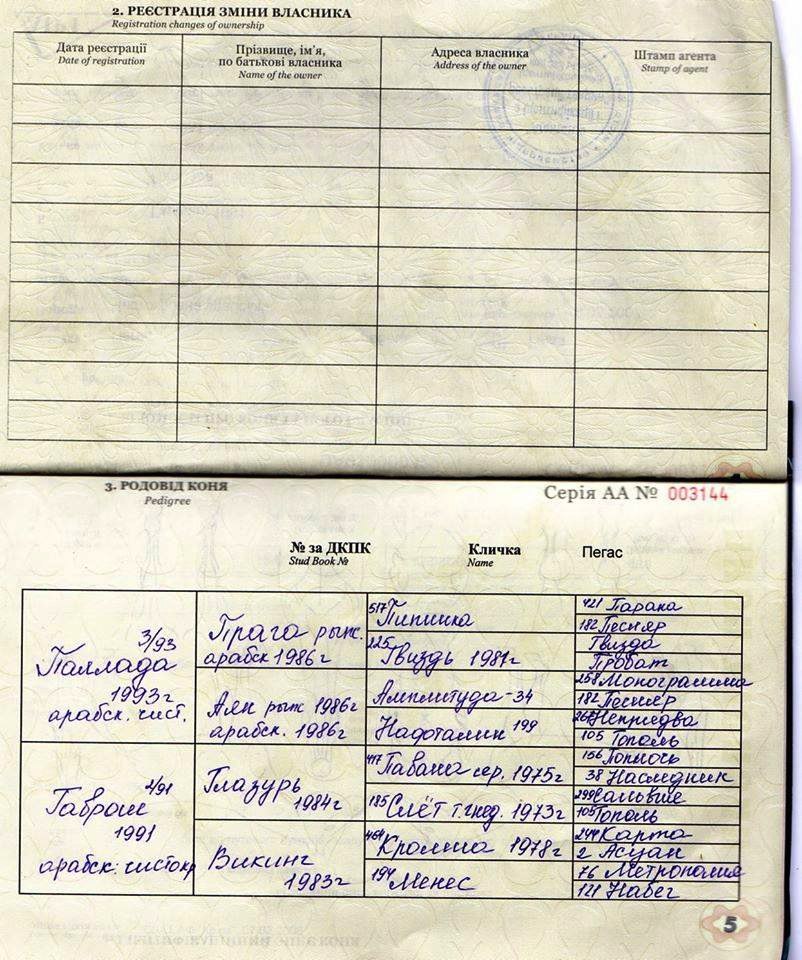 2. РЕЄСТРАЦІЯ ЗМІНИ ВЛАСНИКА
Registration changes of ownership
Дата реєстрації
Date of registration
Прізвище, ім'я,
по батькові власника
Name of the owner
Адреса власника
Address of the owner
Штамп агента
Stamp of agent
3. РОДОВІД КОНЯ
Pedigree
Серія АА № 003144
№ за ДКПК
Stud Book №
Кличка
Name
Пегас
3/93
Паллада
1993г
арабск. чист.
Прага рыж.
арабск 1986г
517 Пипишка
421 Парана
182 Песняр
225 Гвиздь 1981г
Гвизда
Пробат
Аян рыж 1986г
арабск. 1986г
Амплитуда-34
258 Монограмма
182 Песняр
Нафталин 199
Непрядва
105 Тополь
2/91
Габрош
1991
арабск. чистокр
Глазурь
1984г
417 Павана сер. 1975г
156 Понось
38 Наследник
185 Слёт т.гнед. 1973г
Сальвие
105 Тополь
Викинг
1983г
464 Кролиша 1978г
244 Карта
2 Асуан
194 Менес
76 Метрополия
121 Набег
5